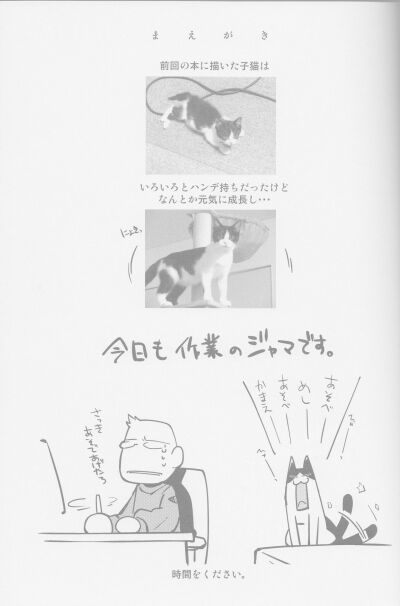 まえがき
前回の本に描いた子猫は
いろいろとハンデ持ちだったけど
なんとか元気に成長し・・・
今日も作業のジャマです。
あそべ
めし
あそべ
かまえ
さっき
あそんであげたろ
時間をください。